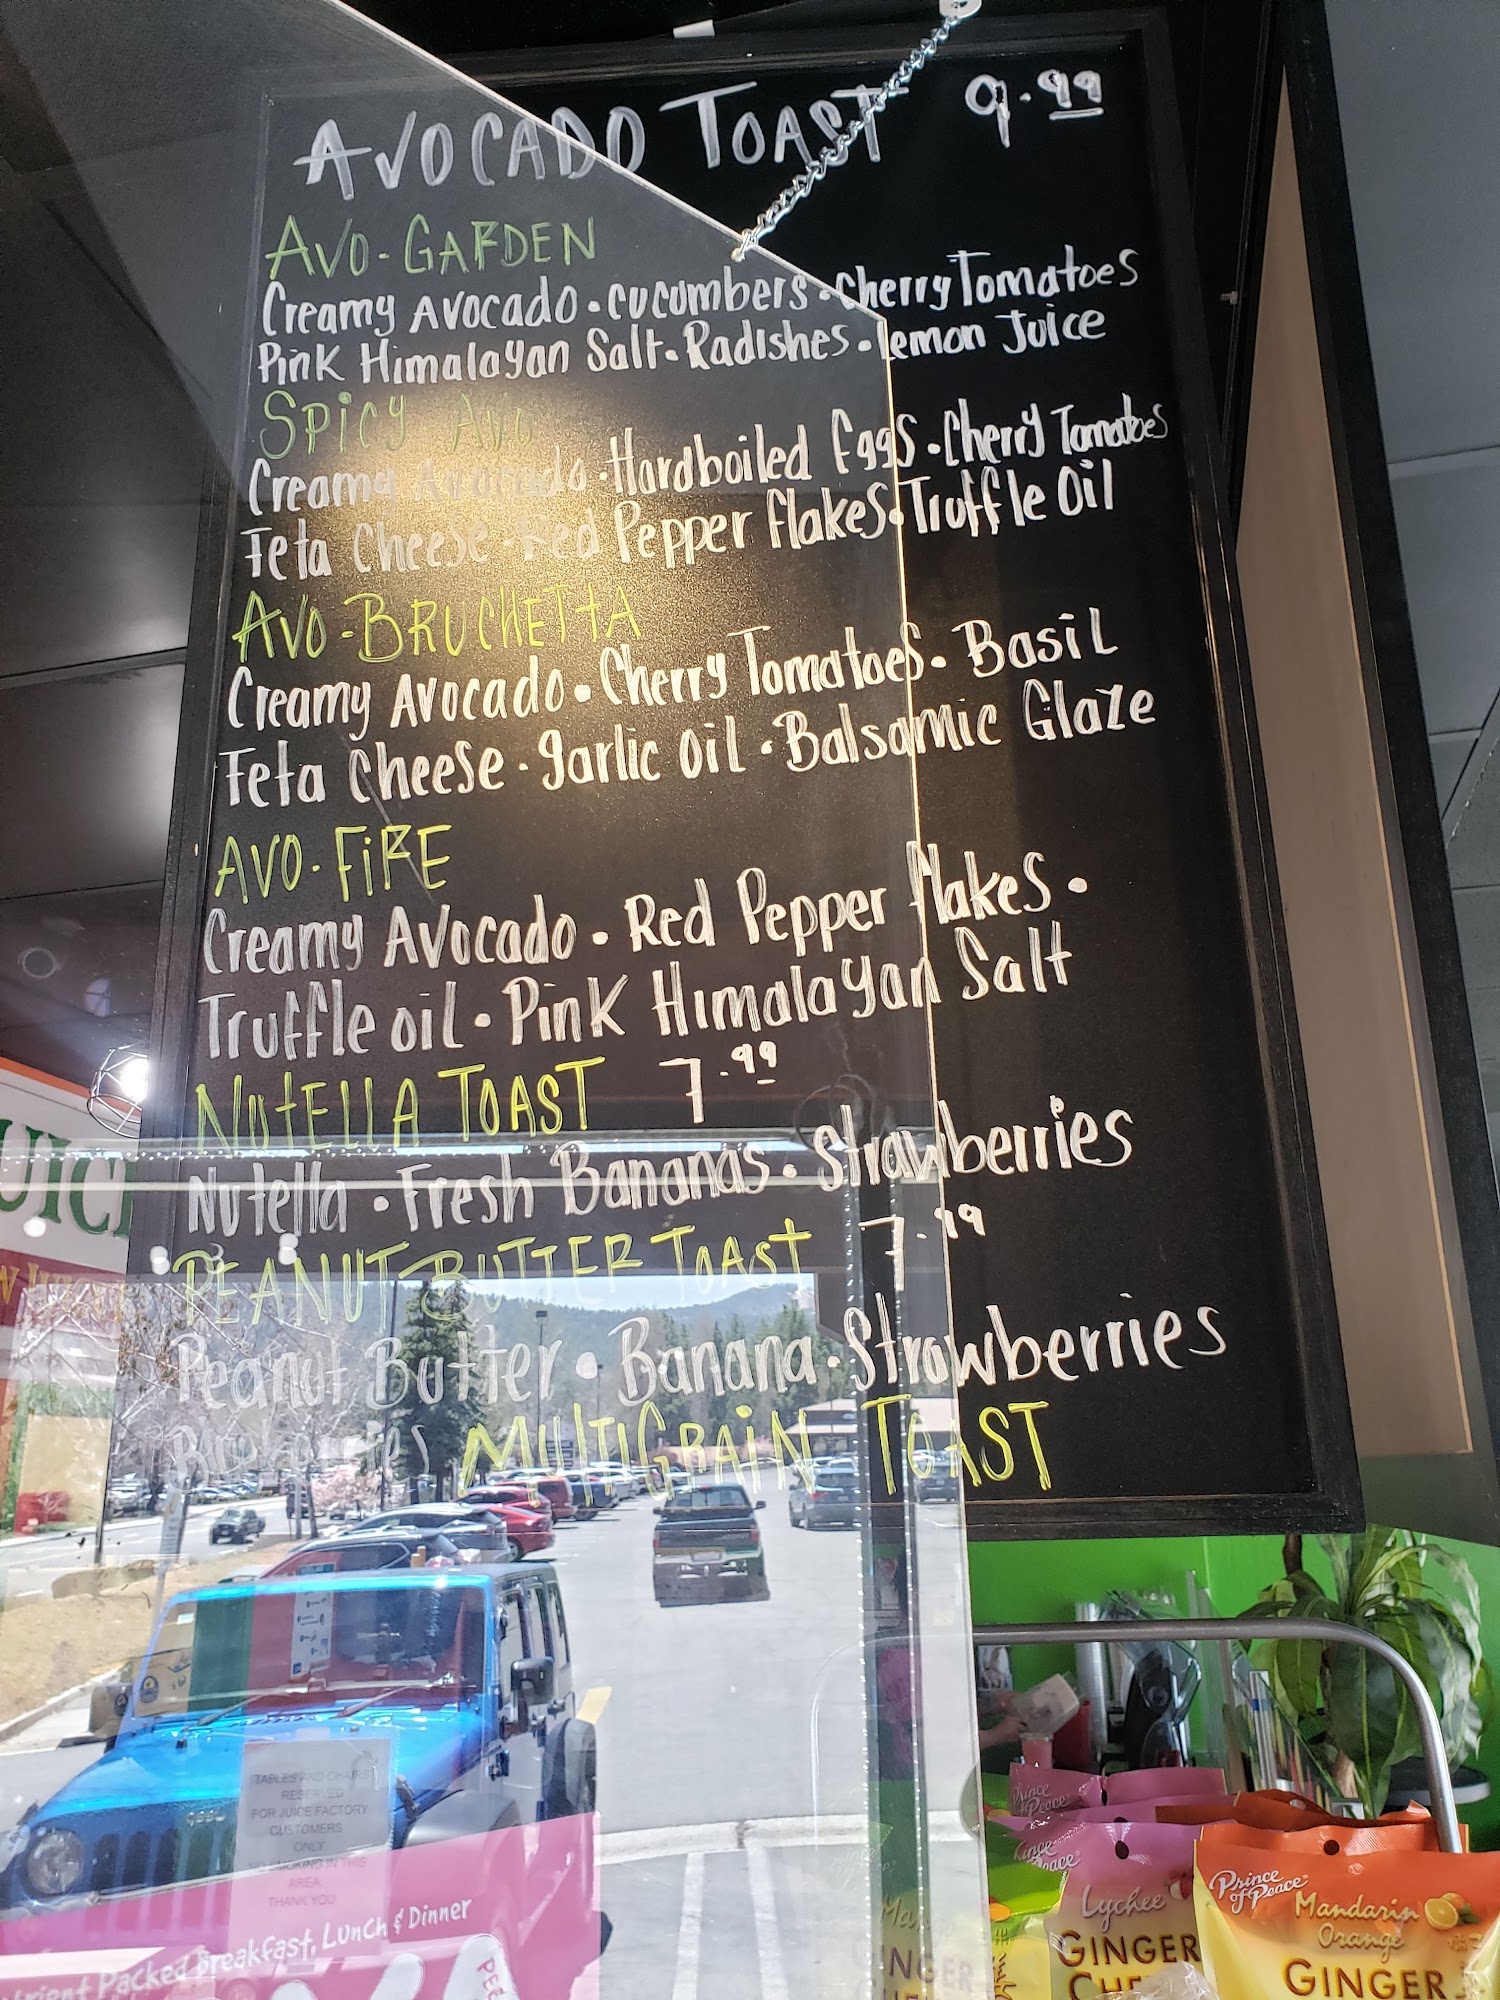 AVOCADO TOAST 9.99
AVO-GARDEN
Creamy Avocado • Cucumbers • Cherry Tomatoes
Pink Himalayan Salt • Radishes • Lemon Juice
SPICY AVO
Creamy Avocado • Hardboiled Eggs • Cherry Tomatoes
Feta Cheese • Red Pepper Flakes • Truffle Oil
AVO-BRUCHETTA
Creamy Avocado • Cherry Tomatoes • Basil
Feta Cheese • garlic oil • Balsamic Glaze
AVO-FIRE
Creamy Avocado • Red Pepper flakes •
Truffle oil • Pink Himalayan Salt
NUTELLA TOAST 7.99
Nutella • Fresh Bananas • Strawberries
PEANUT BUTTER TOAST 7.99
Peanut Butter • Banana • Strawberries
Blueberries MULTIGRAIN TOAST
UICE
TABLES AND CHAIRS
RESERVED
FOR JUICE FACTORY
CUSTOMERS
ONLY
NO SMOKING IN THIS
AREA
THANK YOU
Packed Breakfast, Lunch & Dinner
Prince of Peace
Prince of Peace
Lychee
GINGER
Prince of Peace
Mandarin
Orange
GINGER
GINGER